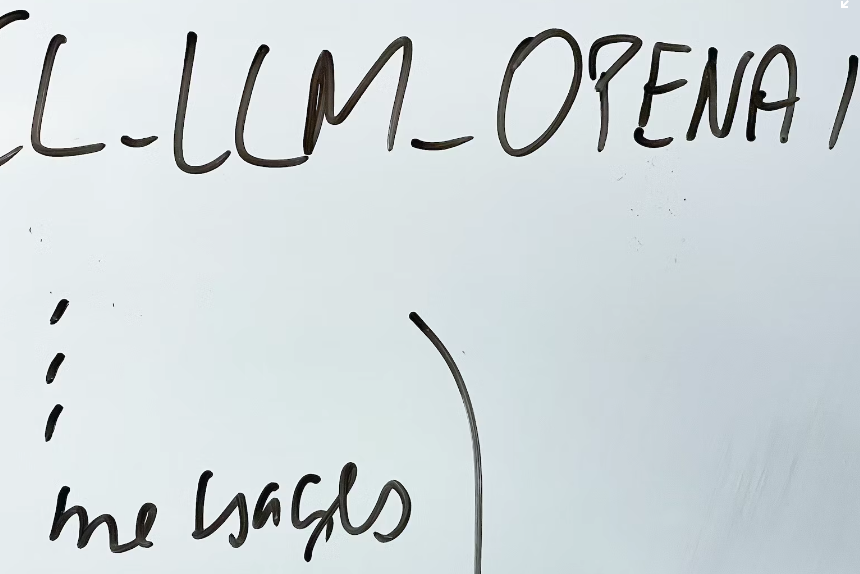 CL_LLM_OPENAI
⋮
messages )